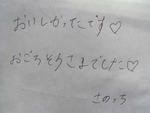 おいしかったです♡
おごちそうさまでした♡
さのっち